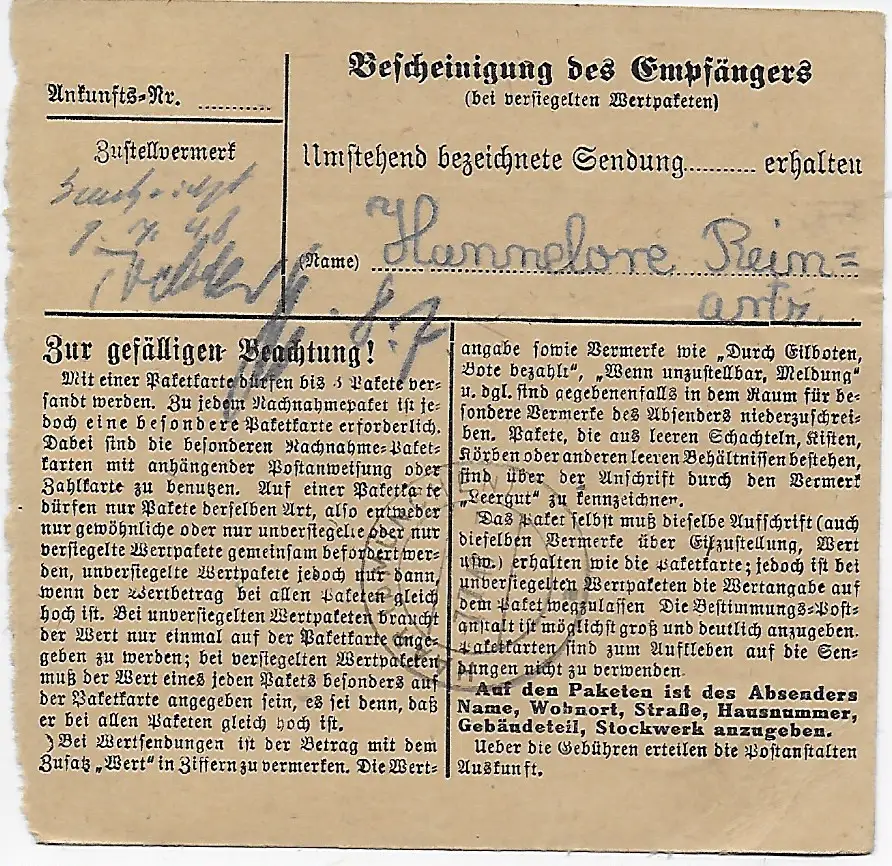 Ankunfts-Nr. ............
Zustellvermerk
Bescheinigung des Empfängers
(bei versiegelten Wertpaketen)
Umstehend bezeichnete Sendung........... erhalten
(Name) Hannelore Rein=
artz
8.7
Zur gefälligen Beachtung!
Mit einer Paketkarte dürfen bis 3 Pakete ver-
sandt werden. Zu jedem Nachnahmepaket ist je-
doch eine besondere Paketkarte erforderlich.
Dabei sind die besonderen Nachnahme-Paket-
karten mit anhängender Postanweisung oder
Zahlkarte zu benutzen. Auf einer Paketkarte
dürfen nur Pakete derselben Art, also entweder
nur gewöhnliche oder nur unversiegelte oder nur
versiegelte Wertpakete gemeinsam befördert wer-
den, unversiegelte Wertpakete jedoch nur dann,
wenn der Wertbetrag bei allen Paketen gleich
hoch ist. Bei unversiegelten Wertpaketen braucht
der Wert nur einmal auf der Paketkarte ange-
geben zu werden; bei versiegelten Wertpaketen
muß der Wert eines jeden Pakets besonders auf
der Paketkarte angegeben sein, es sei denn, daß
er bei allen Paketen gleich hoch ist.
) Bei Wertsendungen ist der Betrag mit dem
Zusatz „Wert" in Ziffern zu vermerken. Die Wert-
angabe sowie Vermerke wie „Durch Eilboten,
Bote bezahlt", „Wenn unzustellbar, Meldung"
u. dgl. sind gegebenenfalls in dem Raum für be-
sondere Vermerke des Absenders niederzuschrei-
ben. Pakete, die aus leeren Schachteln, Kisten,
Körben oder anderen leeren Behältnissen bestehen,
sind über der Anschrift durch den Vermerk
„Leergut" zu kennzeichnen.
Das Paket selbst muß dieselbe Aufschrift (auch
dieselben Vermerke über Eilzustellung, Wert
usw.) erhalten wie die Paketkarte; jedoch ist bei
unversiegelten Wertpaketen die Wertangabe auf
dem Paket wegzulassen. Die Bestimmungs-Post-
anstalt ist möglichst groß und deutlich anzugeben.
Paketkarten sind zum Aufkleben auf die Sen-
dungen nicht zu verwenden.
Auf den Paketen ist des Absenders
Name, Wohnort, Straße, Hausnummer,
Gebäudeteil, Stockwerk anzugeben.
Ueber die Gebühren erteilen die Postanstalten
Auskunft.